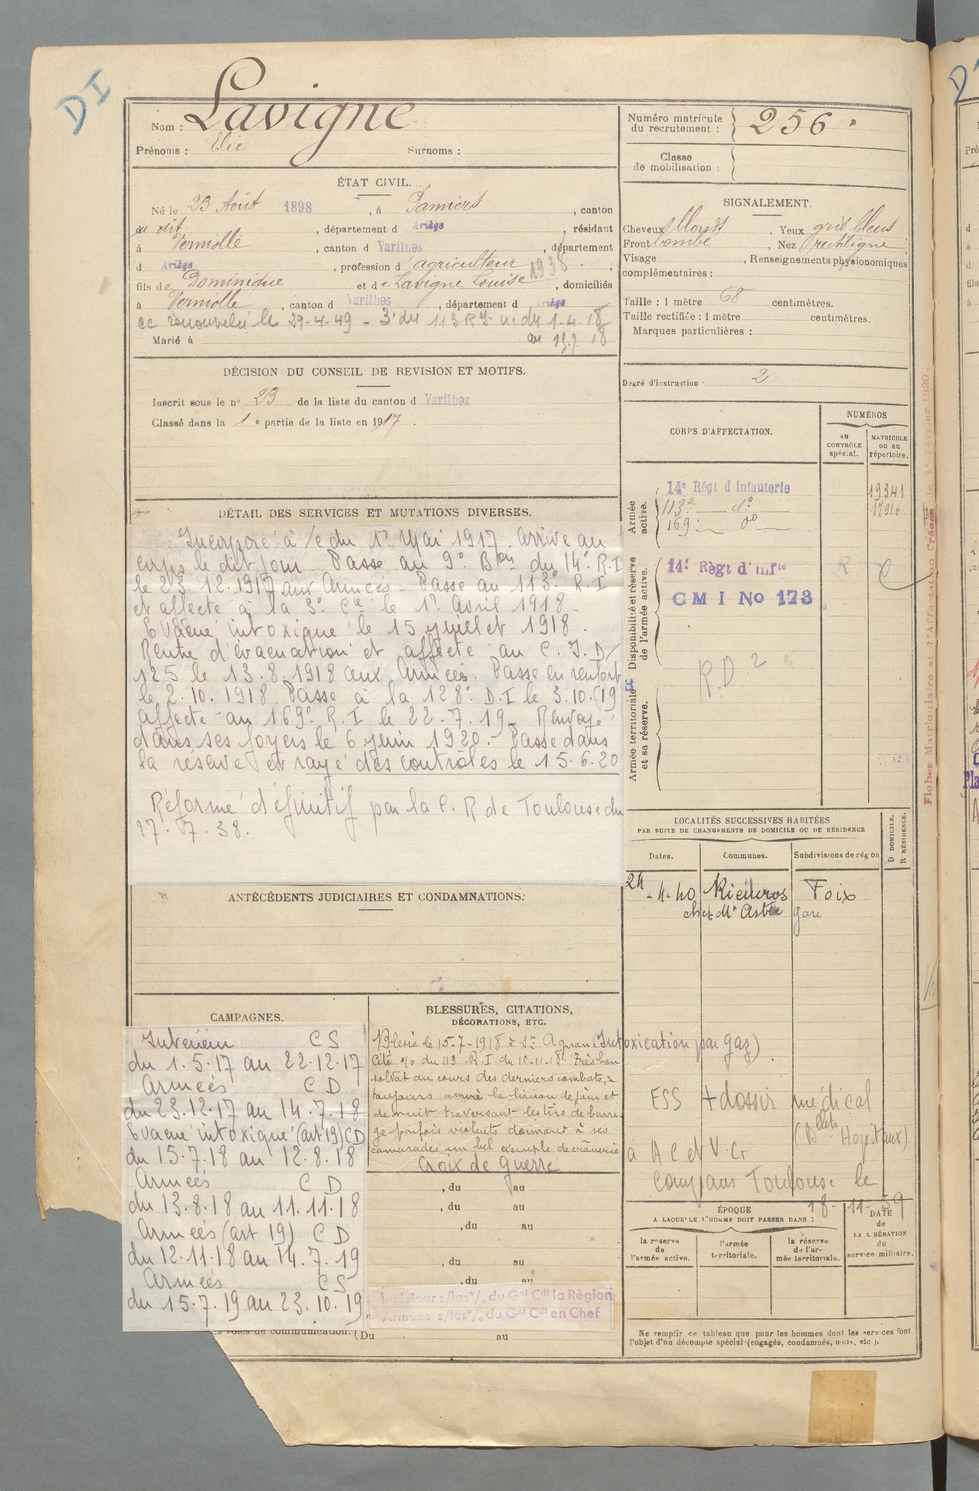 DI
Nom : Lavigne
Prénoms : Elie Surnoms :
Numéro matricule du recrutement : 256
Classe de mobilisation :
ÉTAT CIVIL.
Né le 23 Août 1898, à Pamiers, canton
du dit, département d Ariège, résidant
à Verniolle, canton d Varilhes, département
d Ariège, profession d agriculteur
1938
fils de Dominique et de Lavigne Louise, domiciliés
à Verniolle, canton d Varilhes, département d Ariège
cc renouvelée le 29-4-49 - 3e du 113 RI du 1-4-18
au 15.7.18
Marié à
SIGNALEMENT.
Cheveux blonds. Yeux gris bleus
Front bombé, Nez rectiligne
Visage, Renseignements physionomiques
complémentaires :
Taille : 1 mètre 68 centimètres.
Taille rectifiée : 1 mètre centimètres.
Marques particulières :
Degré d'instruction : 2
DÉCISION DU CONSEIL DE REVISION ET MOTIFS.
Inscrit sous le n° 23 de la liste du canton d Varilhes
Classé dans la 1e partie de la liste en 1917.
DÉTAIL DES SERVICES ET MUTATIONS DIVERSES.
Incorporé à /c du 1er Mai 1917. Arrivé au
corps le dit jour. Passé au 9e Bon du 14e R.I
le 23.12.1917 aux Armées. Passé au 113e R.I
et affecté à la 3e Cie le 1er Avril 1918.
Evacué intoxiqué le 15 juillet 1918.
Rentré d'évacuation et affecté au C.I.D/
125 le 13.8.1918 aux Armées. Passé en renfort
le 2.10.1918. Passé à la 128e D.I le 3.10.(19
affecté au 169e R.I le 22.7.19. Renvoyé
dans ses foyers le 6 juin 1920. Passé dans
la réserve et rayé des contrôles le 15.6.20
Réformé définitif par la C.R de Toulouse du
17.7.38.
CORPS D'AFFECTATION.
NUMÉROS
au CONTRÔLE spécial.
MATRICULE ou au répertoire.
Armée active.
14e Régt d'Infanterie 19341
113e do 12916
169e do
Disponibilité et réserve de l'armée active.
14e Règt d'Infie R
CMI No 173
Armée territoriale et sa réserve.
R.D 2
LOCALITÉS SUCCESSIVES HABITÉES
PAR SUITE DE CHANGEMENTS DE DOMICILE OU DE RÉSIDENCE
Dates. Communes. Subdivisions de région
D DOMICILE. R RÉSIDENCE.
24-4-40 Rieucros Foix
chez Mr gare
ANTÉCÉDENTS JUDICIAIRES ET CONDAMNATIONS.
CAMPAGNES.
Intérieur CS
du 1.5.17 au 22.12.17
Armées CD
du 23.12.17 au 14.7.18
Evacué intoxiqué (art 19) CD
du 15.7.18 au 12.8.18
Armées CD
du 13.8.18 au 11.11.18
Armées (art 19) CD
du 12.11.18 au 14.7.19
Armées CS
du 15.7.19 au 23.10.19
BLESSURES, CITATIONS,
DÉCORATIONS, ETC.
Blessé le 15-7-1918 à St Agnan (Intoxication par gaz).
Cité o/o du 113 R.I. du 10-11-18. Très bon
soldat au cours des derniers combats, a
toujours assuré la liaison de jour et
de nuit traversant les tirs de barra-
ge parfois violents donnant à ses
camarades un bel exemple de crânerie
Croix de Guerre
, du au
, du au
, du au
, du au
, du au
Intérieur s/les o/ du Gal Ct la Région
Armées s/les o/ du Gal Ct en Chef
les voies de communication. (Du au
ESS + dossier médical
(Blets Hospitaux)
à AC et V.G
Toulouse le
18-11-59
ÉPOQUE
A LAQUELLE L'HOMME DOIT PASSER DANS :
la réserve de l'armée active.
l'armée territoriale.
la réserve de l'armée territoriale.
DATE de LA LIBÉRATION du service militaire.
Ne remplir ce tableau que pour les hommes dont les services font
l'objet d'un décompte spécial (engagés, condamnés, omis, etc.).